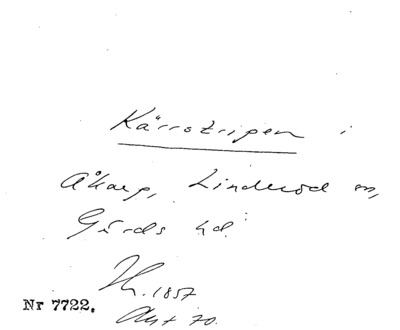 Kärrstripen i
Åkarp, Linderöd sn,
Gärds hd.
1857
Nr 7722.
70.